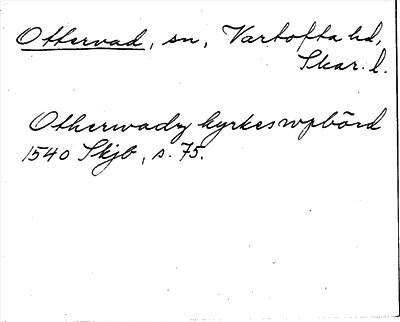 Ottervad, sn, Vartofta hd,
Skar. l.
Otherwadz kyrkeswpbörd
1540 Skjb, s. 75.